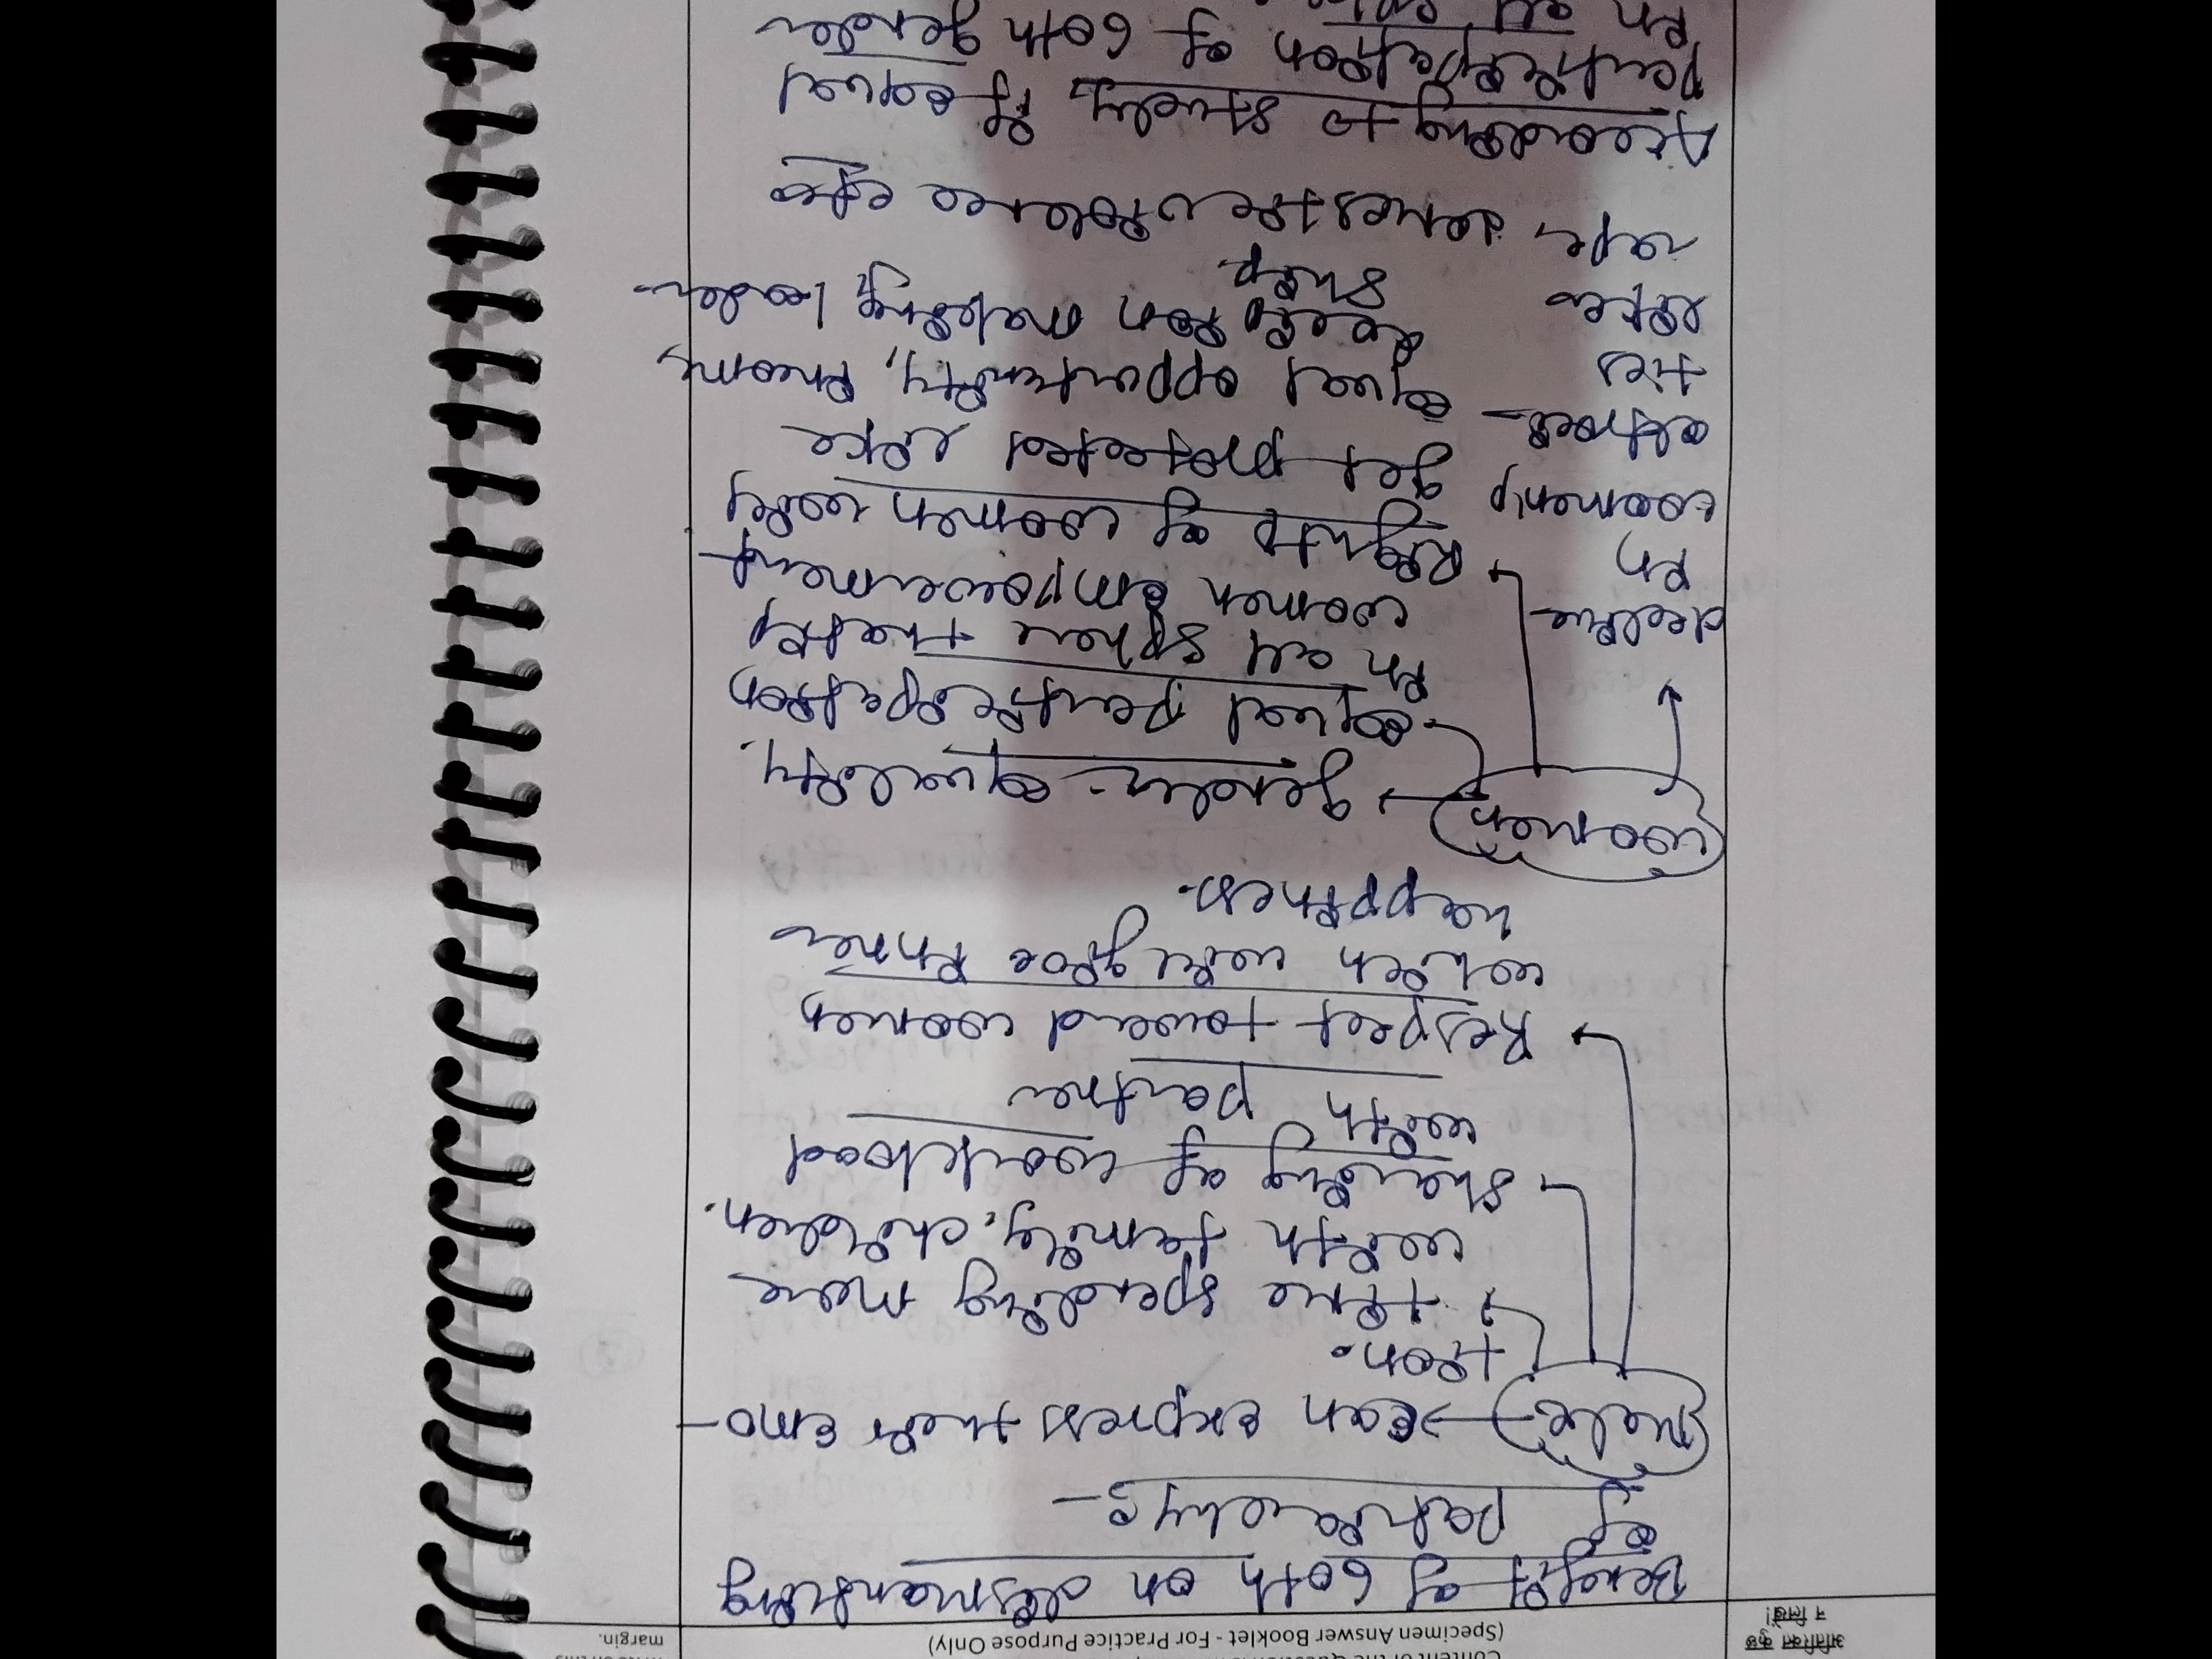 अतिरिक्त कुछ
न लिखें!
(Specimen Answer Booklet - For Practice Purpose Only)
margin.
Benefit of both on dismantling
of patriarchy :-
Male → Can express their emo-
tion.
→ time spending more
with family, children.
→ Sharing of workload
with partner
→ Respect toward women
which will give inner
happiness.
women → gender - equality.
→ equal participation
in all sphere that is
women empowerment
→ Rights of women will
get protected like
equal opportunity, income
decision making leader-
ship.
→ decline
in
women
atroci-
ties
like
rape, domestic violence etc.
According to study if equal
participation of both gender
in all